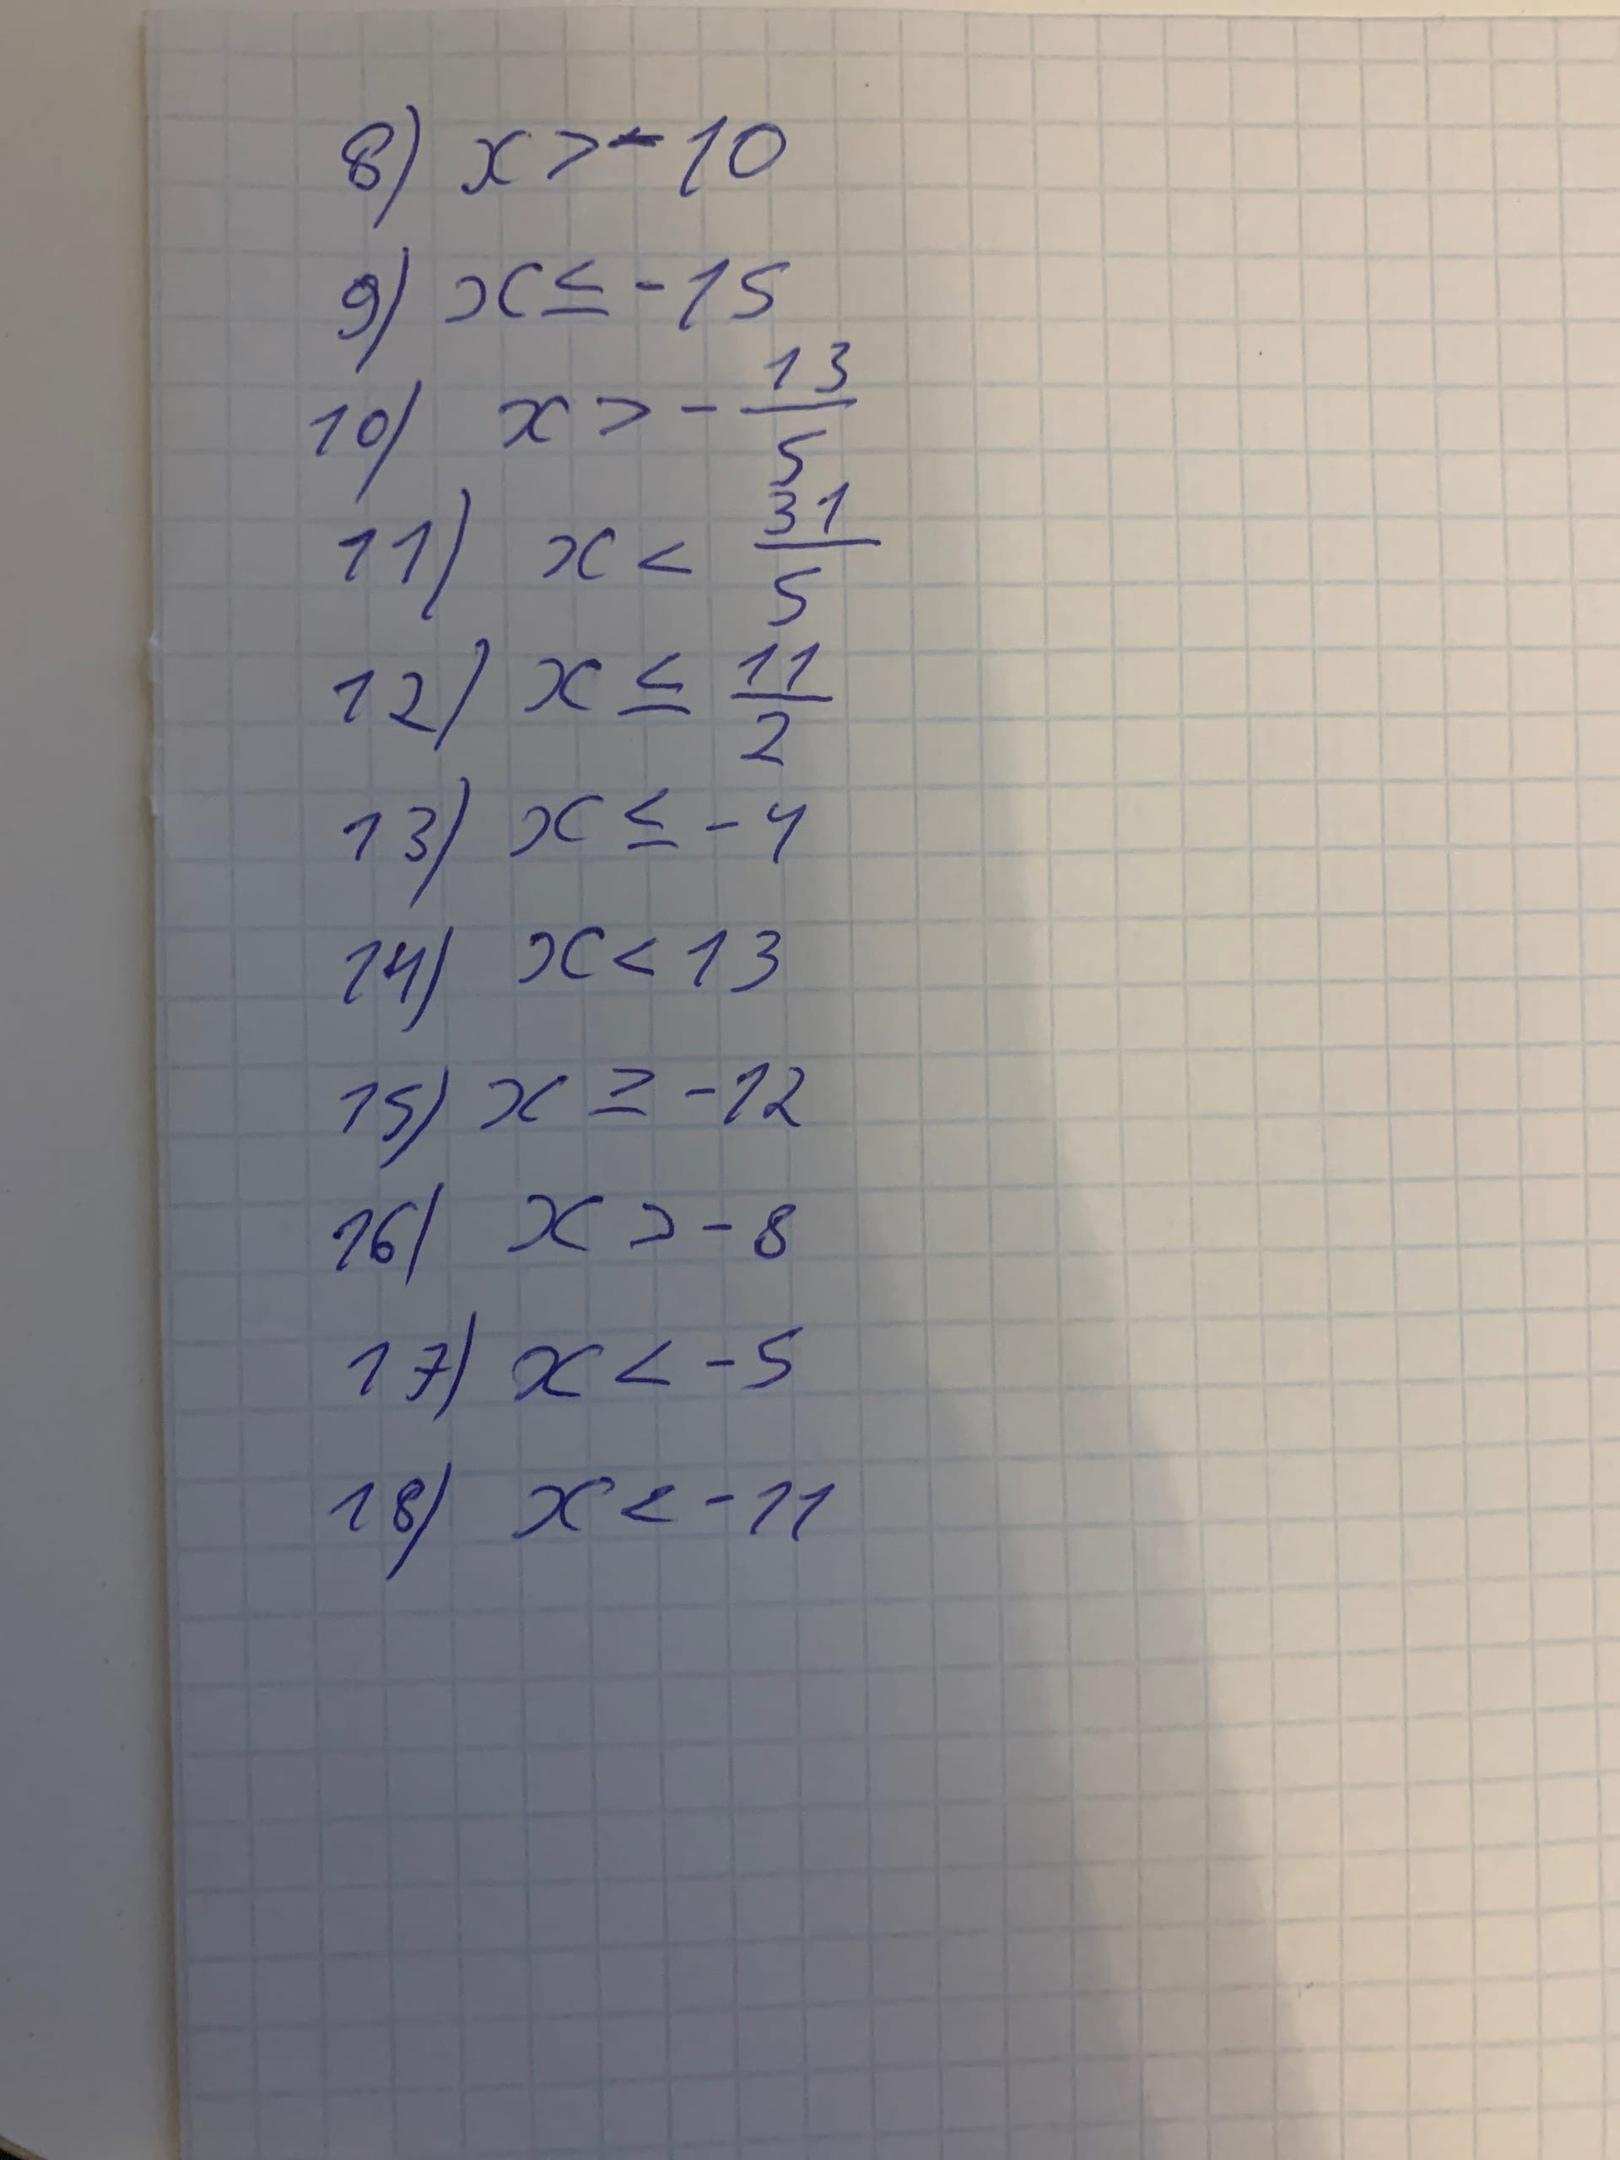 8) x > -10
9) x ≤ -15
10) x > - 13/5
11) x < 31/5
12) x ≤ 11/2
13) x ≤ -4
14) x < 13
15) x ≥ -12
16) x > -8
17) x < -5
18) x < -11